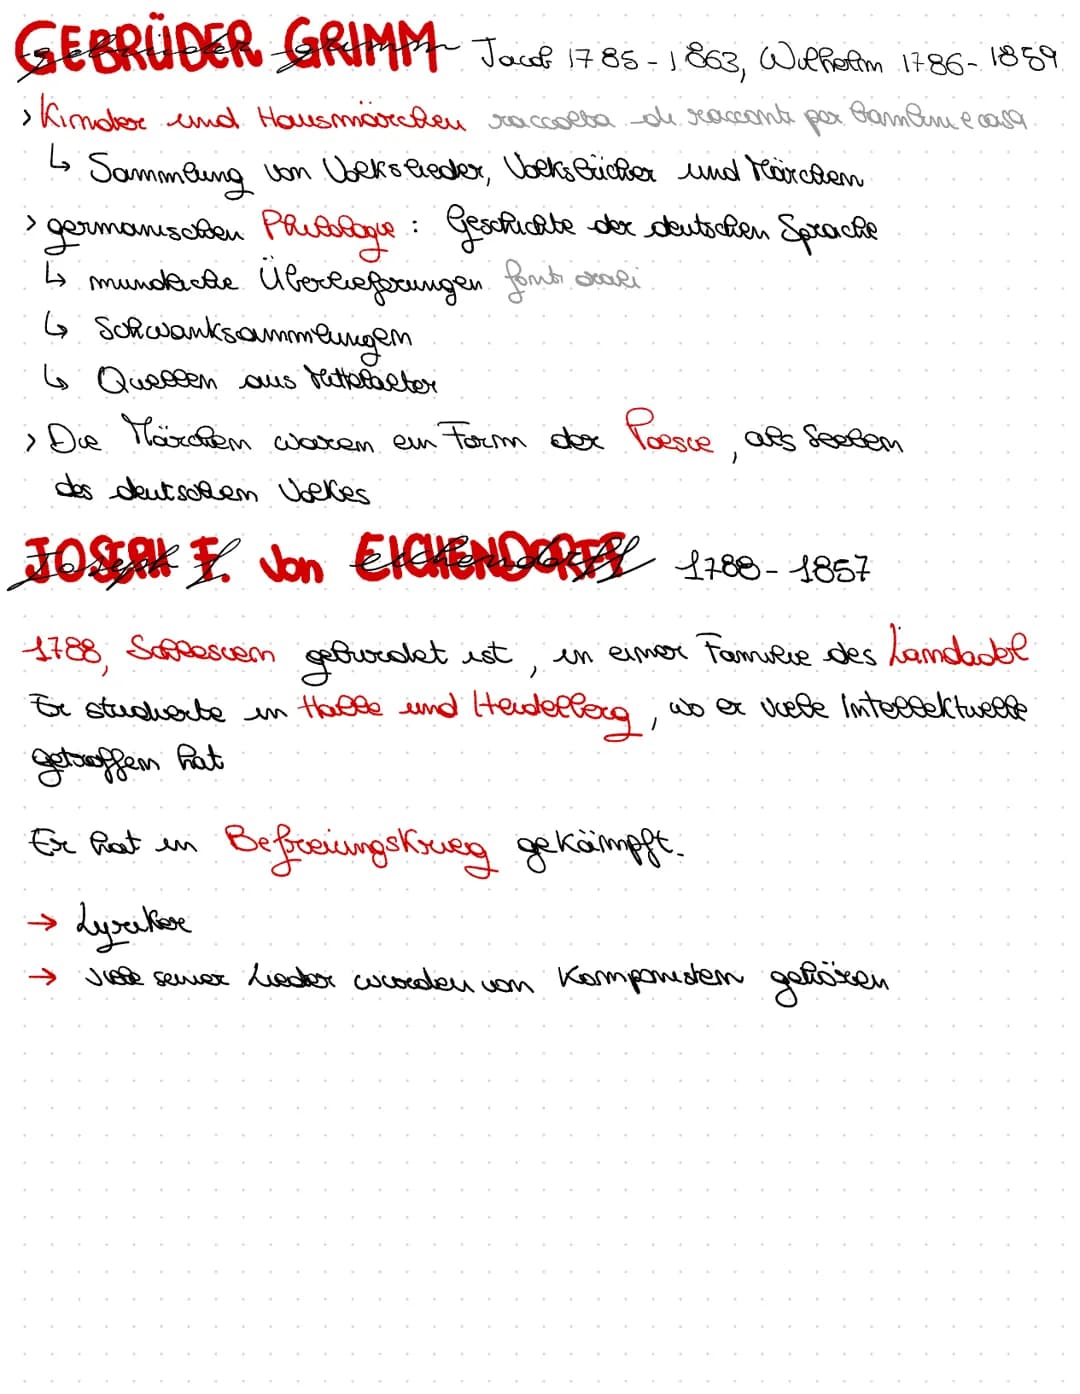 GEBRÜDER GRIMM Jacob 1785-1863, Wilhelm 1786-1859
> Kinder und Hausmärchen raccolta di racconti per bambini e casa
↳ Sammlung von Volkslieder, Volksbücher und Märchen
> germanischen Philologie: Geschichte der deutschen Sprache
↳ mundliche Überlieferungen fonti orali
↳ Schwanksammlungen
↳ Quellen aus Mittelalter
> Die Märchen waren ein Form der Poesie, als Seelen
des deutschen Volkes
JOSEPH F. von EICHENDORFF 1788-1857
1788, Schlesien geburdet ist, in einer Familie des Landadel
Er studierte in Halle und Heidelberg, wo er viele Intellektuelle
getroffen hat
Er hat in Befreiungskrieg gekämpft.
→ Lyriker
→ Viele seiner Lieder wurden von Komponisten gehören